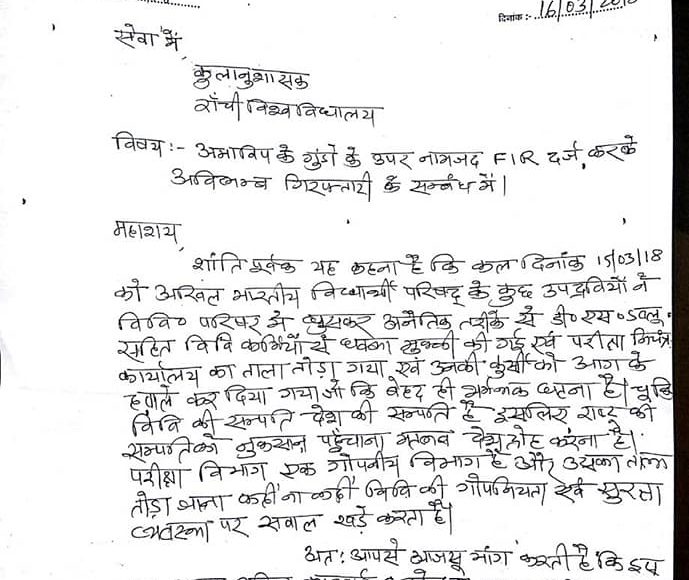 दिनांक :- 16/03/2018
सेवा में,
कुलानुशासक
राँची विश्वविद्यालय
विषय :- अभाविप के गुंडो के उपर नामजद FIR दर्ज करके
अविलम्ब गिरफ्तारी के सम्बंध में।
महाशय,
शांति पूर्वक यह कहना है कि कल दिनांक 15/03/18
को अखिल भारतीय विद्यार्थी परिषद् के कुछ उपद्रवियों ने
वि०वि० परिषर में घुसकर अनैतिक तरीके से डी० एस० डब्लू०
सहित विवि कर्मियों से धक्का मुक्की की गई एवं परीक्षा नियंत्रक
कार्यालय का ताला तोड़ा गया एवं उनकी कुर्सी को आग के
हवाले कर दिया गया जो कि बेहद ही शर्मनाक घटना है। चूकि
विवि की सम्पति देश की सम्पति है इसलिए राष्ट्र की
सम्पति को नुकसान पहुँचाना मतलब देशद्रोह करना है।
परीक्षा विभाग एक गोपनीय विभाग है और उसका ताला
तोड़ा जाना कहीं ना कहीं विवि की गोपनियता एवं सुरक्षा
व्यवस्था पर सवाल खड़े करता है।
अत: आपसे आजसू मांग करती है कि इस